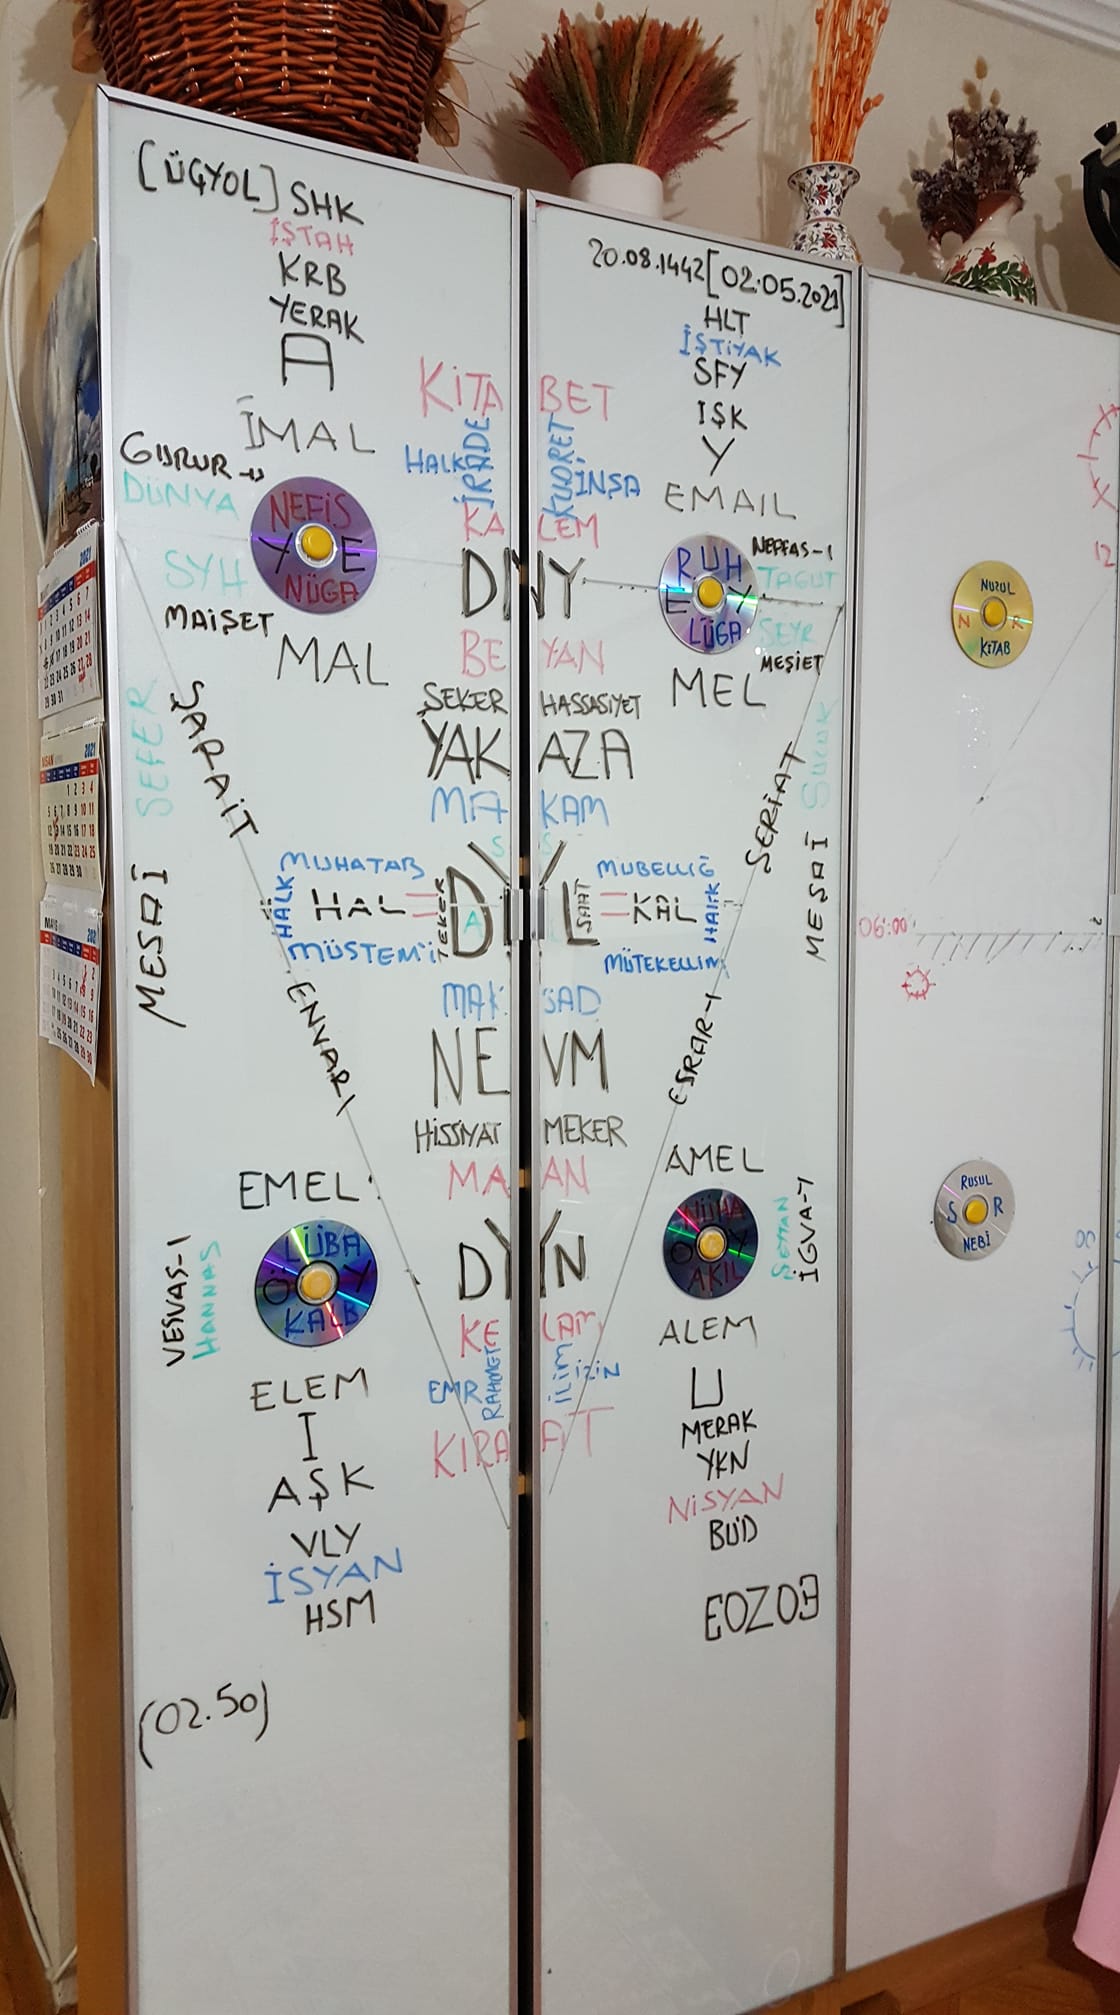 [ÜÇYOL] SHK
İŞTAH
KRB
YERAK
A
İMAL
GURUR
DÜNYA
NEFİS
Y E
NÜGA
SYH
MAİŞET
MAL
SEFER
ŞARAİT
MESAİ
MUHATAB
HALK
HAL =
MÜSTEMİ
ENVARI
EMEL
VESVAS-I
HANNAS
LÜBA
Ö Y
KALB
ELEM
I
AŞK
VLY
İSYAN
HSM
(02.50)
KİTA BET
HALK İRADE KUDRET İNŞA
KA LEM
DNY
BE YAN
ŞEKER HASSASİYET
YAK AZA
MA KAM
S S
TEKER DİL SAAT
A
MAK SAD
NE VM
HİSSİYAT MEKER
MA AN
DYN
KE LAM
EMR RAHMET İLİM İZİN
KIRA AT
20.08.1442 [02.05.2021]
HLT
İŞTİYAK
SFY
IŞK
Y
EMAIL
RUH
E Y
LÜGA
NEFFAS-I
TAGUT
SEYR
MEŞİET
MEL
SÜLUK
ŞERİAT
MESAİ
MÜBELLİĞ
= KAL
HALK
MÜTEKELLİM
ESRAR-I
AMEL
NÜHA
O Y
AKIL
ŞEYTAN
İGVA-Y
ALEM
U
MERAK
YKN
NİSYAN
BUD
EOZOE
NUZUL
N R
KİTAB
06:00
12
RUSUL
S R
NEBİ
2021
NİSAN 2021
MAYIS 2021